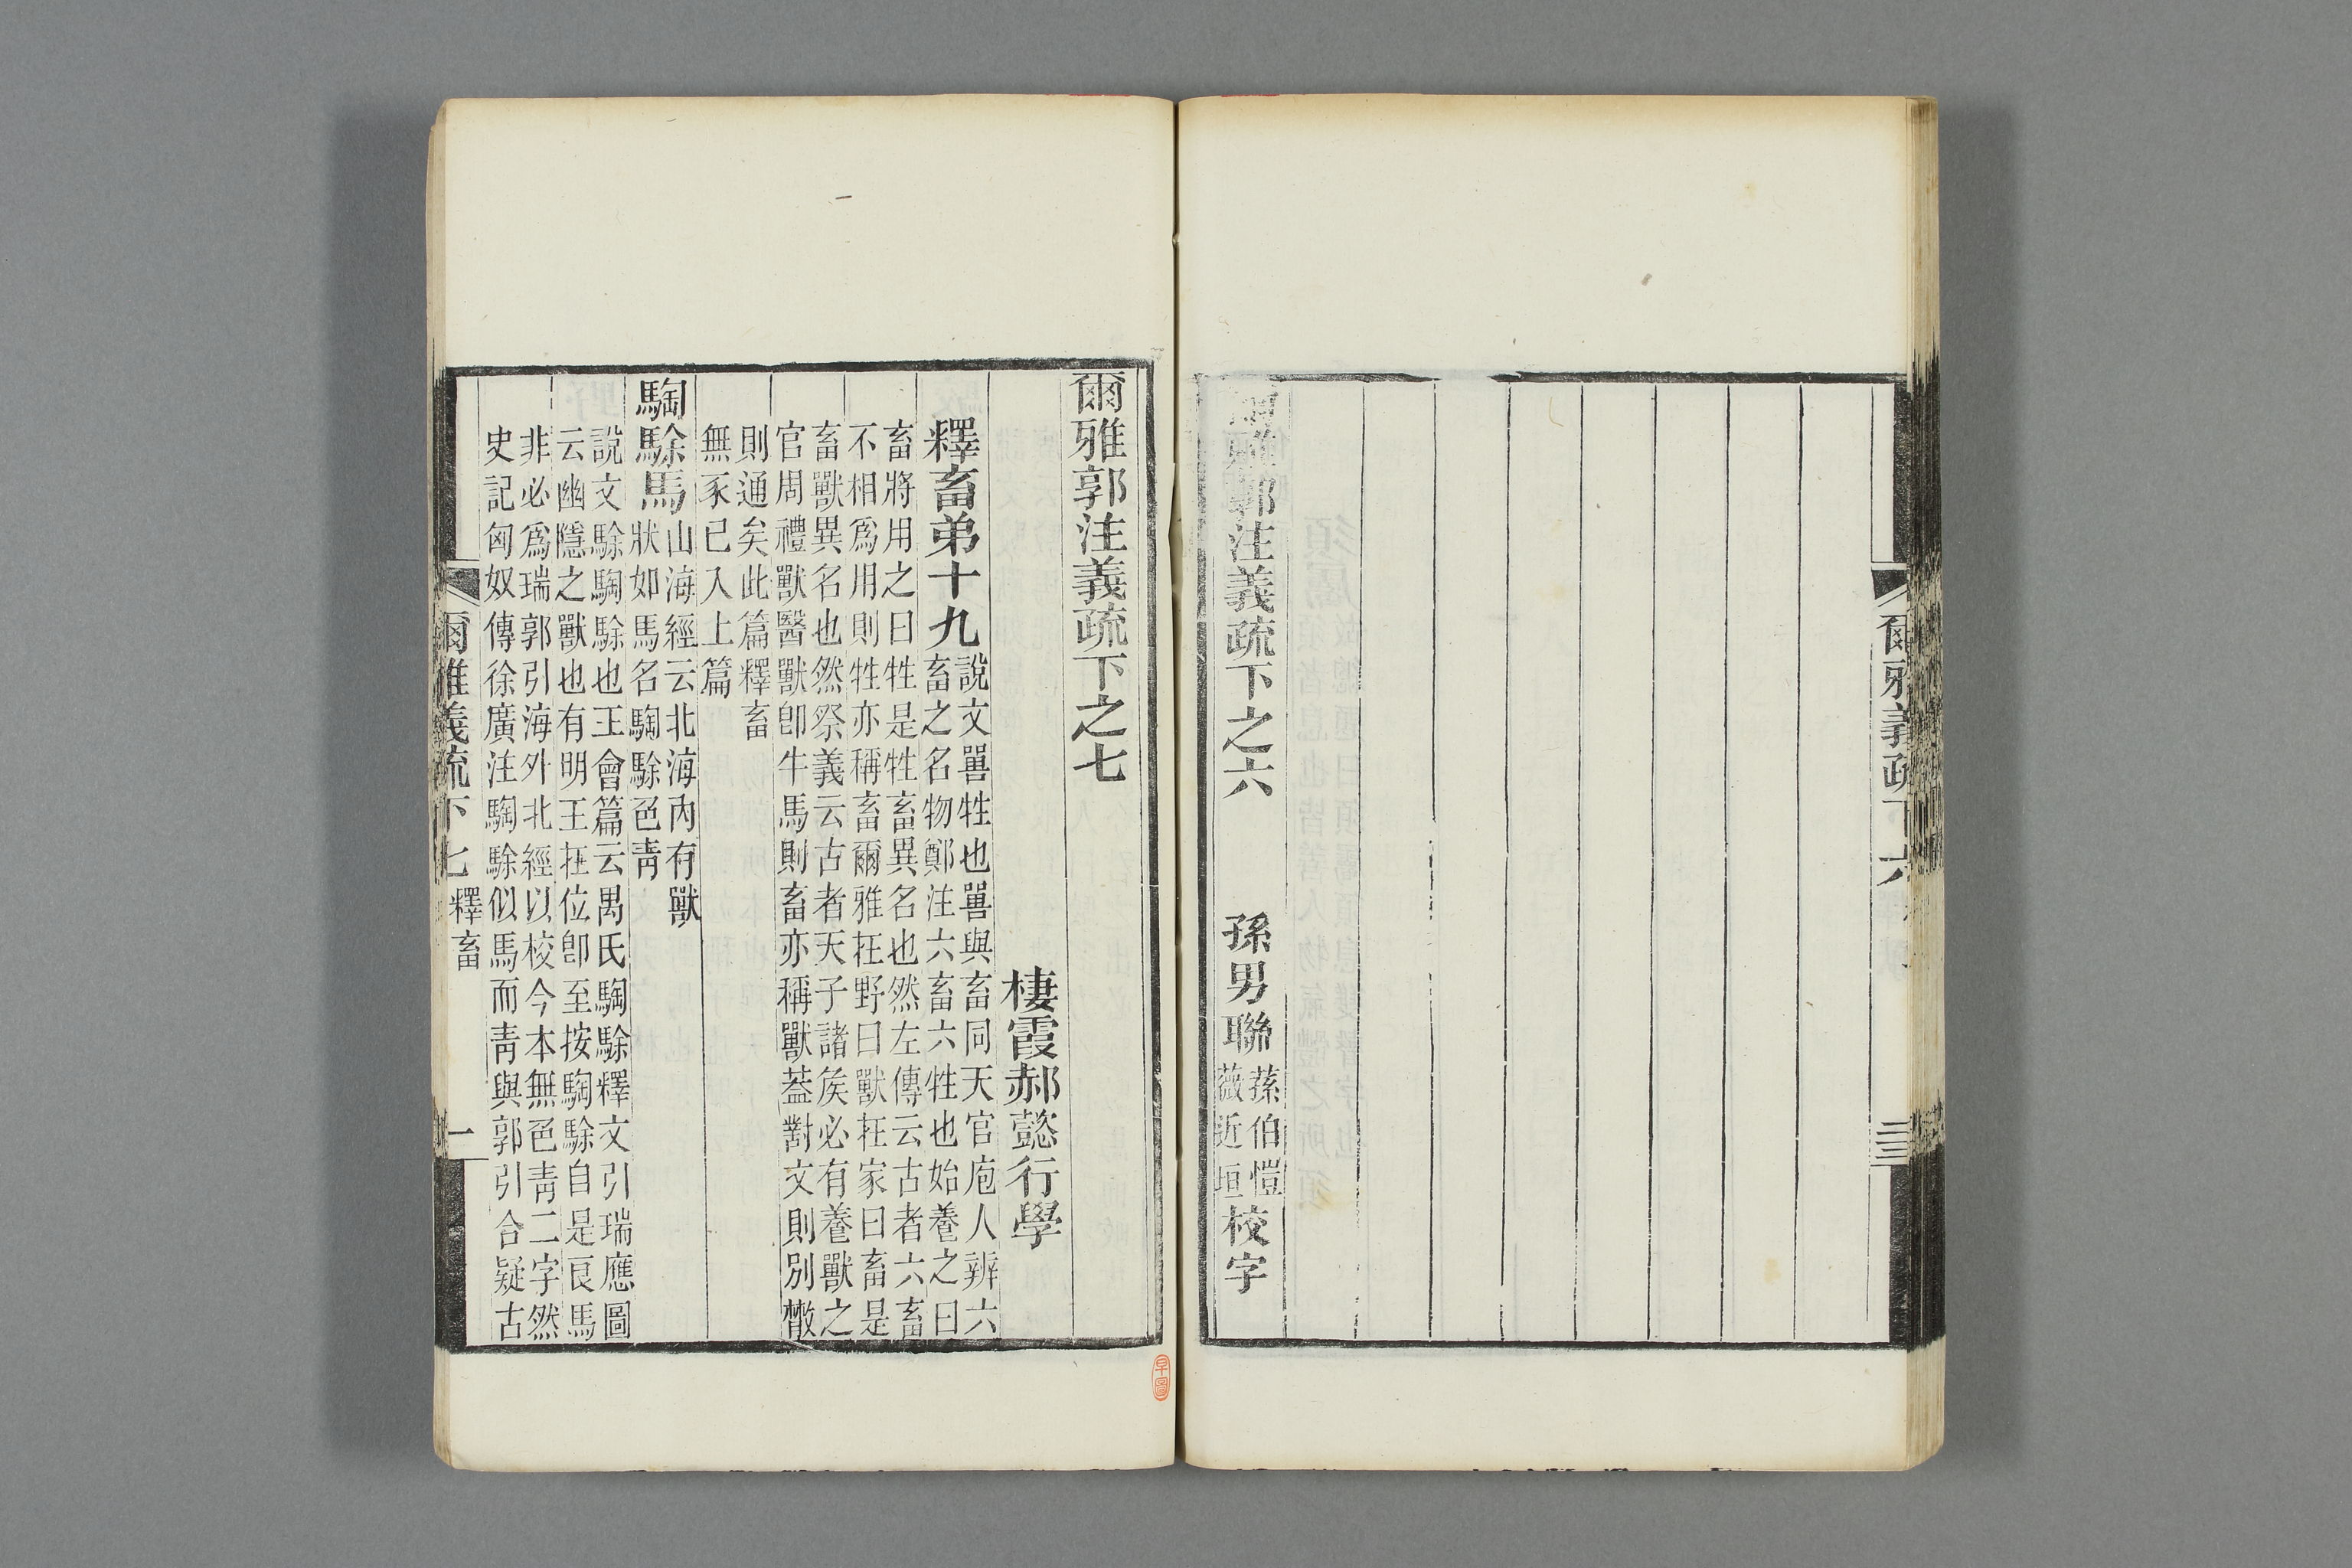 爾雅義疏下六
三
爾雅郭注義疏下之六　孫男聯
蓀伯愷
薇近垣
校字
爾雅郭注義疏下之七
棲霞郝懿行學
釋畜弟十九
說文嘼㹌也嘼與畜同天官庖人辨六
畜之名物鄭注六畜六牲也始養之曰
畜將用之曰牲是牲畜異名也然左傳云古者六畜
不相爲用則牲亦稱畜爾雅在野曰獸在家曰畜是
畜獸異名也然祭義云古者天子諸矦必有養獸之
官周禮獸醫獸卽牛馬則畜亦稱獸葢對文則別㪚
則通矣此篇釋畜
無豕已入上篇
騊駼馬
山海經云北海內有獸
狀如馬名騊駼色靑
說文駼騊駼也王會篇云禺氏騊駼釋文引瑞應圖
云幽隱之獸也有明王在位卽至按騊駼自是良馬
非必爲瑞郭引海外北經以校今本無色靑二字然
史記匈奴傳徐廣注騊駼似馬而靑與郭引合疑古
爾雅義疏下七　釋畜
一